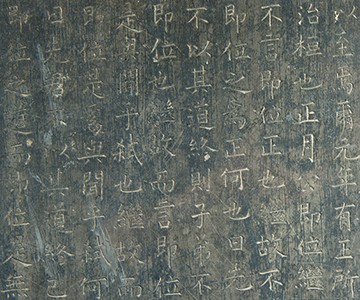 以至焉爾元年有王所
治桓也正月公即位繼
不言即位正也繼故不
即位之為正何也曰先
不以其道終則子弟不
即位也繼故而言即位
是與聞乎弒也繼故而
即位是為與聞乎弒何
曰先君不以其道終已
即位之道而即位是無